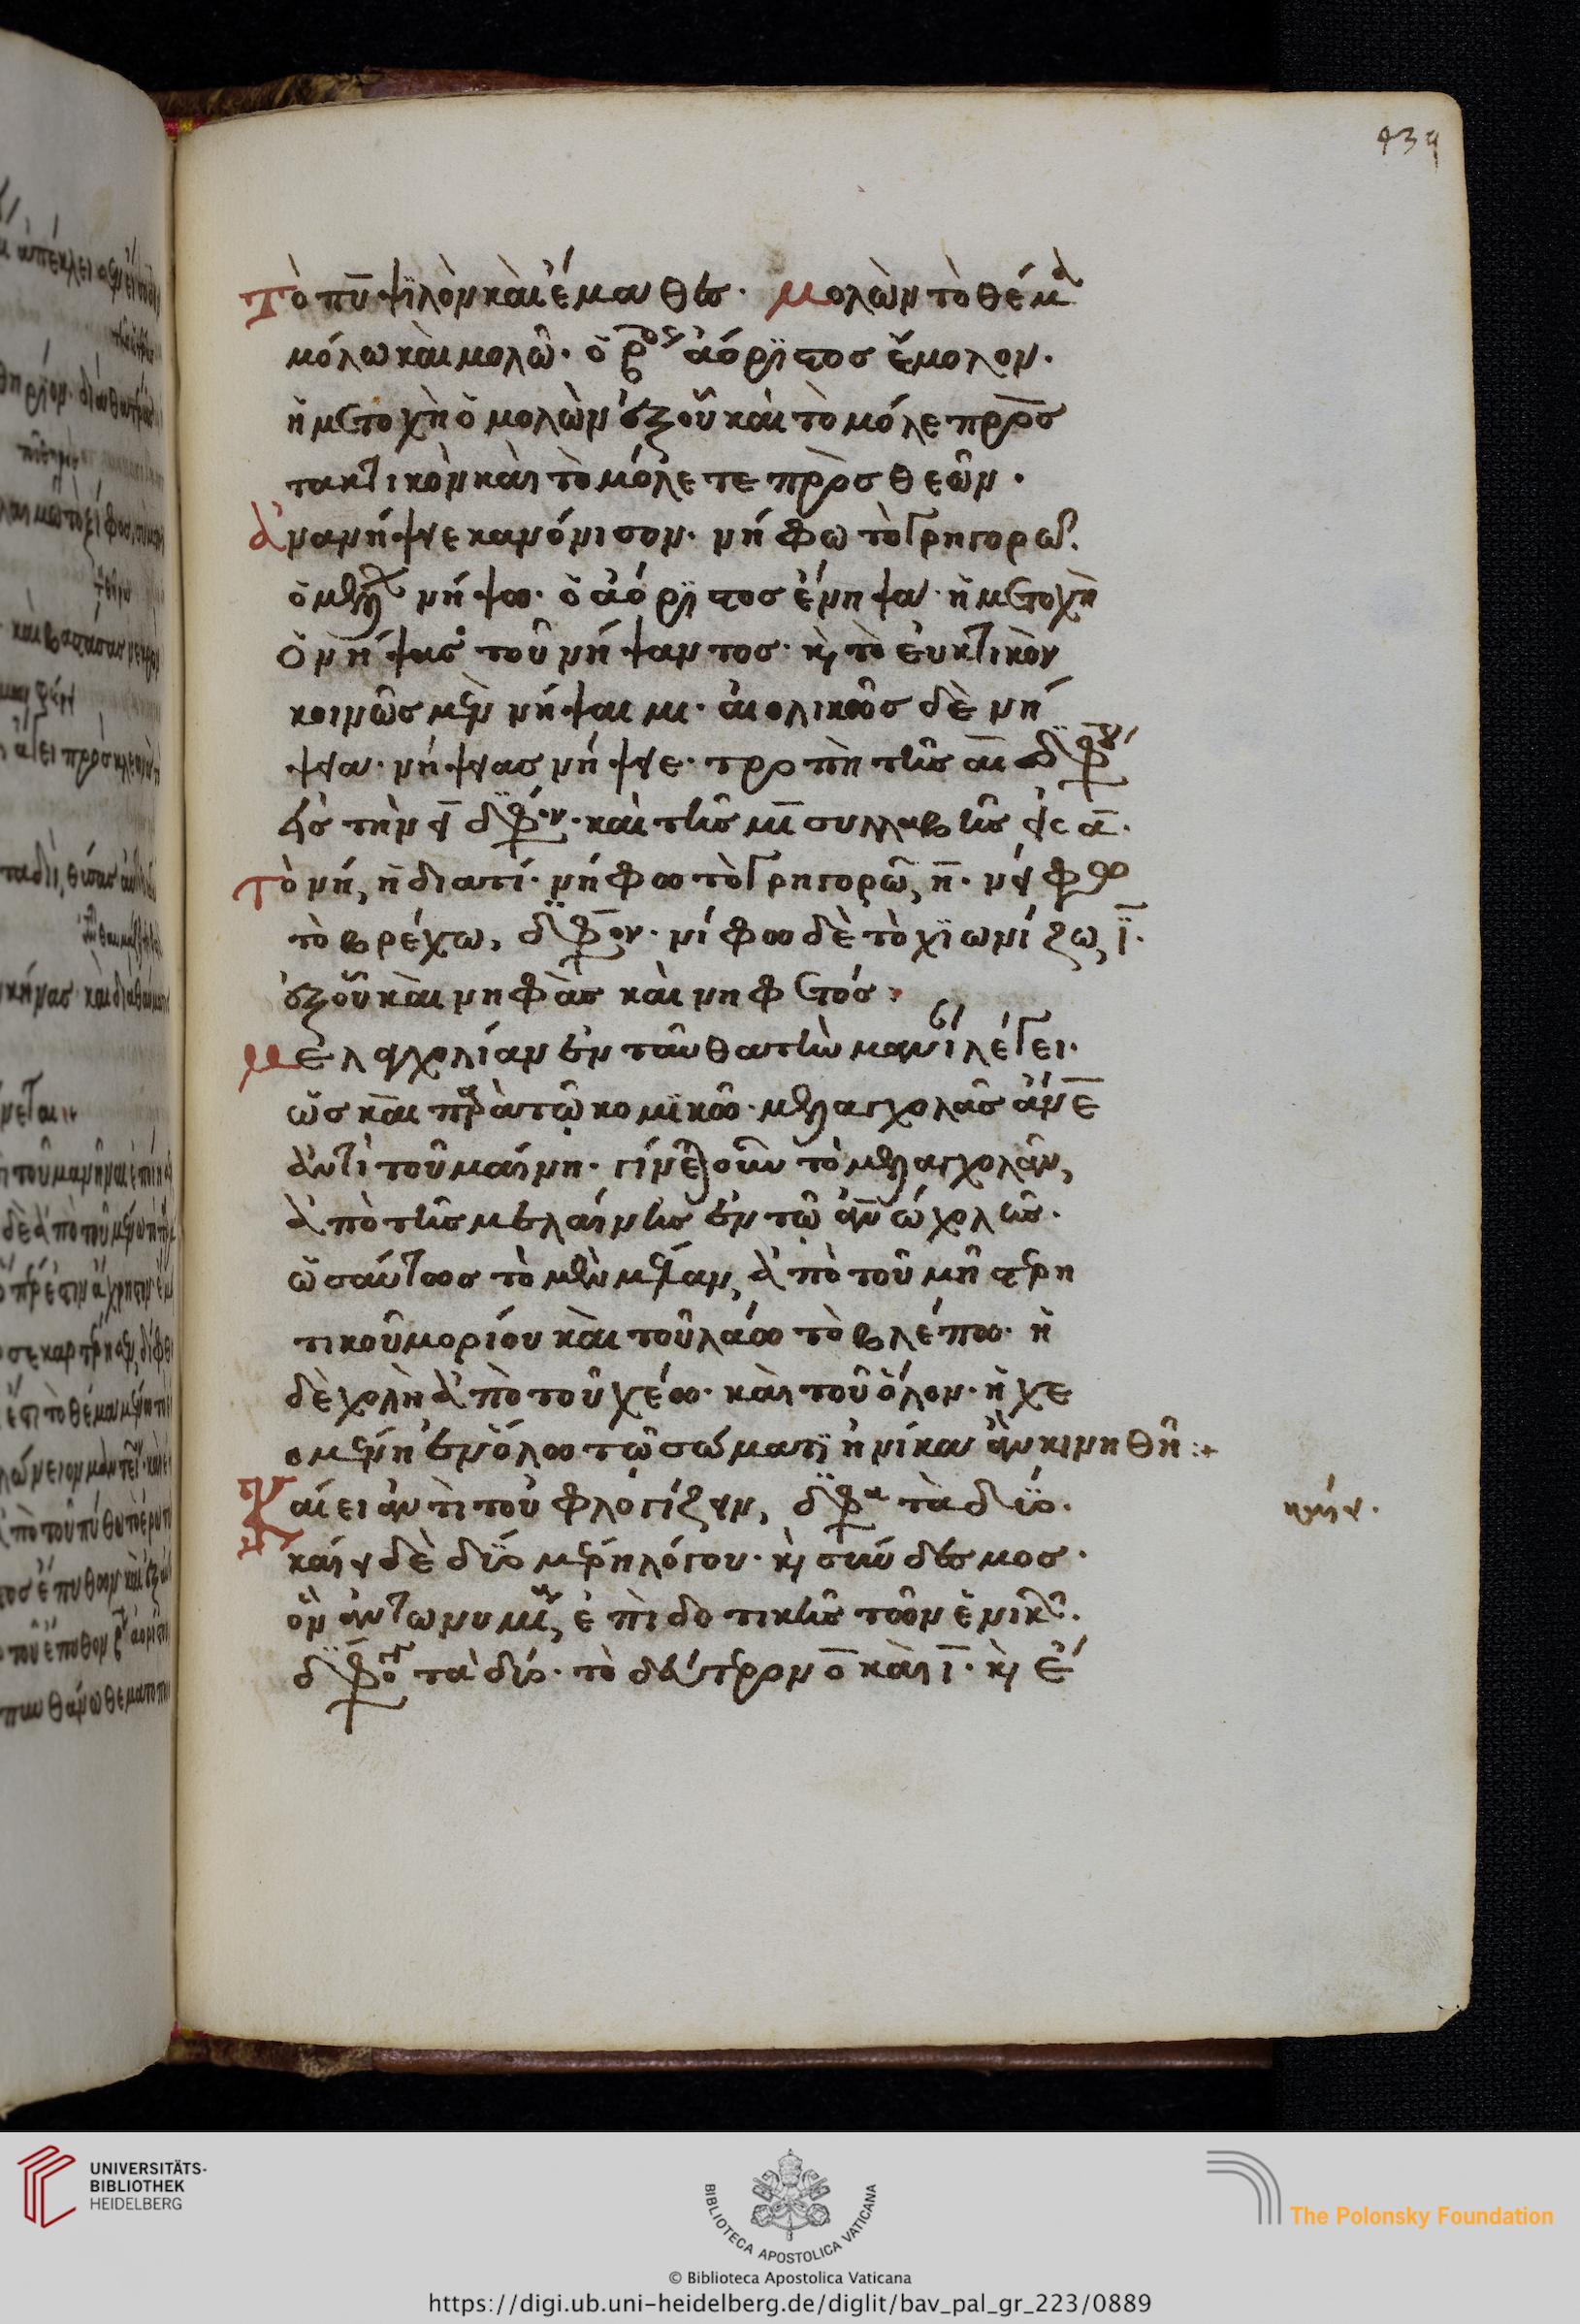 439
Τὸ πῦ ψϊλὸν καὶ ἔμαθες. Μολὼν τὸ θέμα
μόλω καὶ μολῶ. ὁ β ἀόρϊστος ἔμολον.
ἡ μετοχὴ ὁ μολὼν ἐξ οὗ καὶ τὸ μόλε προσ
τακτικὸν καὶ τὸ μόλετε πρὸς θεῶν.
ἀνανήψει κανόνισον. νήφω τὸ γρηγορῶ.
ὁ μέλλων νήψω. ὁ ἀόρϊστος ἔνηψα. ἡ μετοχὴ
ὁ νήψας τοῦ νήψαντος. κὶ τὸ εὐκτικὸν
κοινῶς μὲν νήψαιμι. αἰολικῶς δὲ νή
ψεια. νήψειας νήψειε. τροπὴ τῆς αι διφ
εἰς τὴν ει διφ. καὶ τῆς μι συλλαβῆς εἰς α.
Τὸ νή, ἢ διατί. νήφω τὸ γρηγορῶ, η. νείφω
τὸ βρέχω, διφον. νίφω δὲ τὸ χϊωνίζω, ϊ.
ἐξ οὗ καὶ νηφὰς καὶ νηφετός:
Μελαγχολίαν ἐνταῦθα τὴν μανί λέγει.
ὡς καὶ παρὰ τῶ κομϊκῶ. μελαγχολᾶς ἄνε
ἀντὶ τοῦ μαίνη. γίνε οὖν τὸ μελαγχολᾶν,
ἀπὸ τῆς μελαίνης ἐν τῶ ἀνω χολῆς.
ὡσαύτως τὸ μέλαν, ἀπὸ τοῦ μὴ στερη
τικοῦ μορίου καὶ τοῦ λάω τὸ βλέπω. ἡ
δὲ χολὴ ἀπὸ τοῦ χέω. καὶ τοῦ ὅλον. ἡ χε
ομένη ἐν ὅλω τῶ σώματϊ ἡνίκα ἂν κινηθῆ:
Καίει ἀντὶ τοῦ φλογίζειν, διφα τὰ δύο.
καὶ εἰ δὲ δύο μέρη λόγου. κὶ σύνδεσμος.
ὃν ἀντωνυμί, ἐπὶ δοτικῆς τῶν ἑνικ.
διφο τὰ δύο. τὸ δεύτερον ο καὶ ι. κὶ ἐ
UNIVERSITÄTS-
BIBLIOTHEK
HEIDELBERG
BIBLIOTECA APOSTOLICA VATICANA
The Polonsky Foundation
© Biblioteca Apostolica Vaticana
https://digi.ub.uni-heidelberg.de/diglit/bav_pal_gr_223/0889